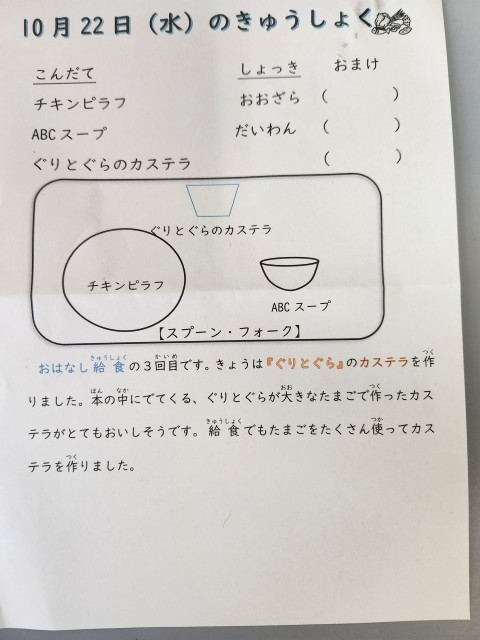 10月22日（水）のきゅうしょく
こんだて しょっき おまけ
チキンピラフ おおざら （ ）
ABCスープ だいわん （ ）
ぐりとぐらのカステラ （ ）
ぐりとぐらのカステラ
チキンピラフ
ABCスープ
【スプーン・フォーク】
きゅうしょく かいめ つく
おはなし給食の３回目です。きょうは『ぐりとぐら』のカステラを作
ほん なか おお つく
りました。本の中にでてくる、ぐりとぐらが大きなたまごで作ったカス
きゅうしょく つか
テラがとてもおいしそうです。給食でもたまごをたくさん使ってカス
つく
テラを作りました。